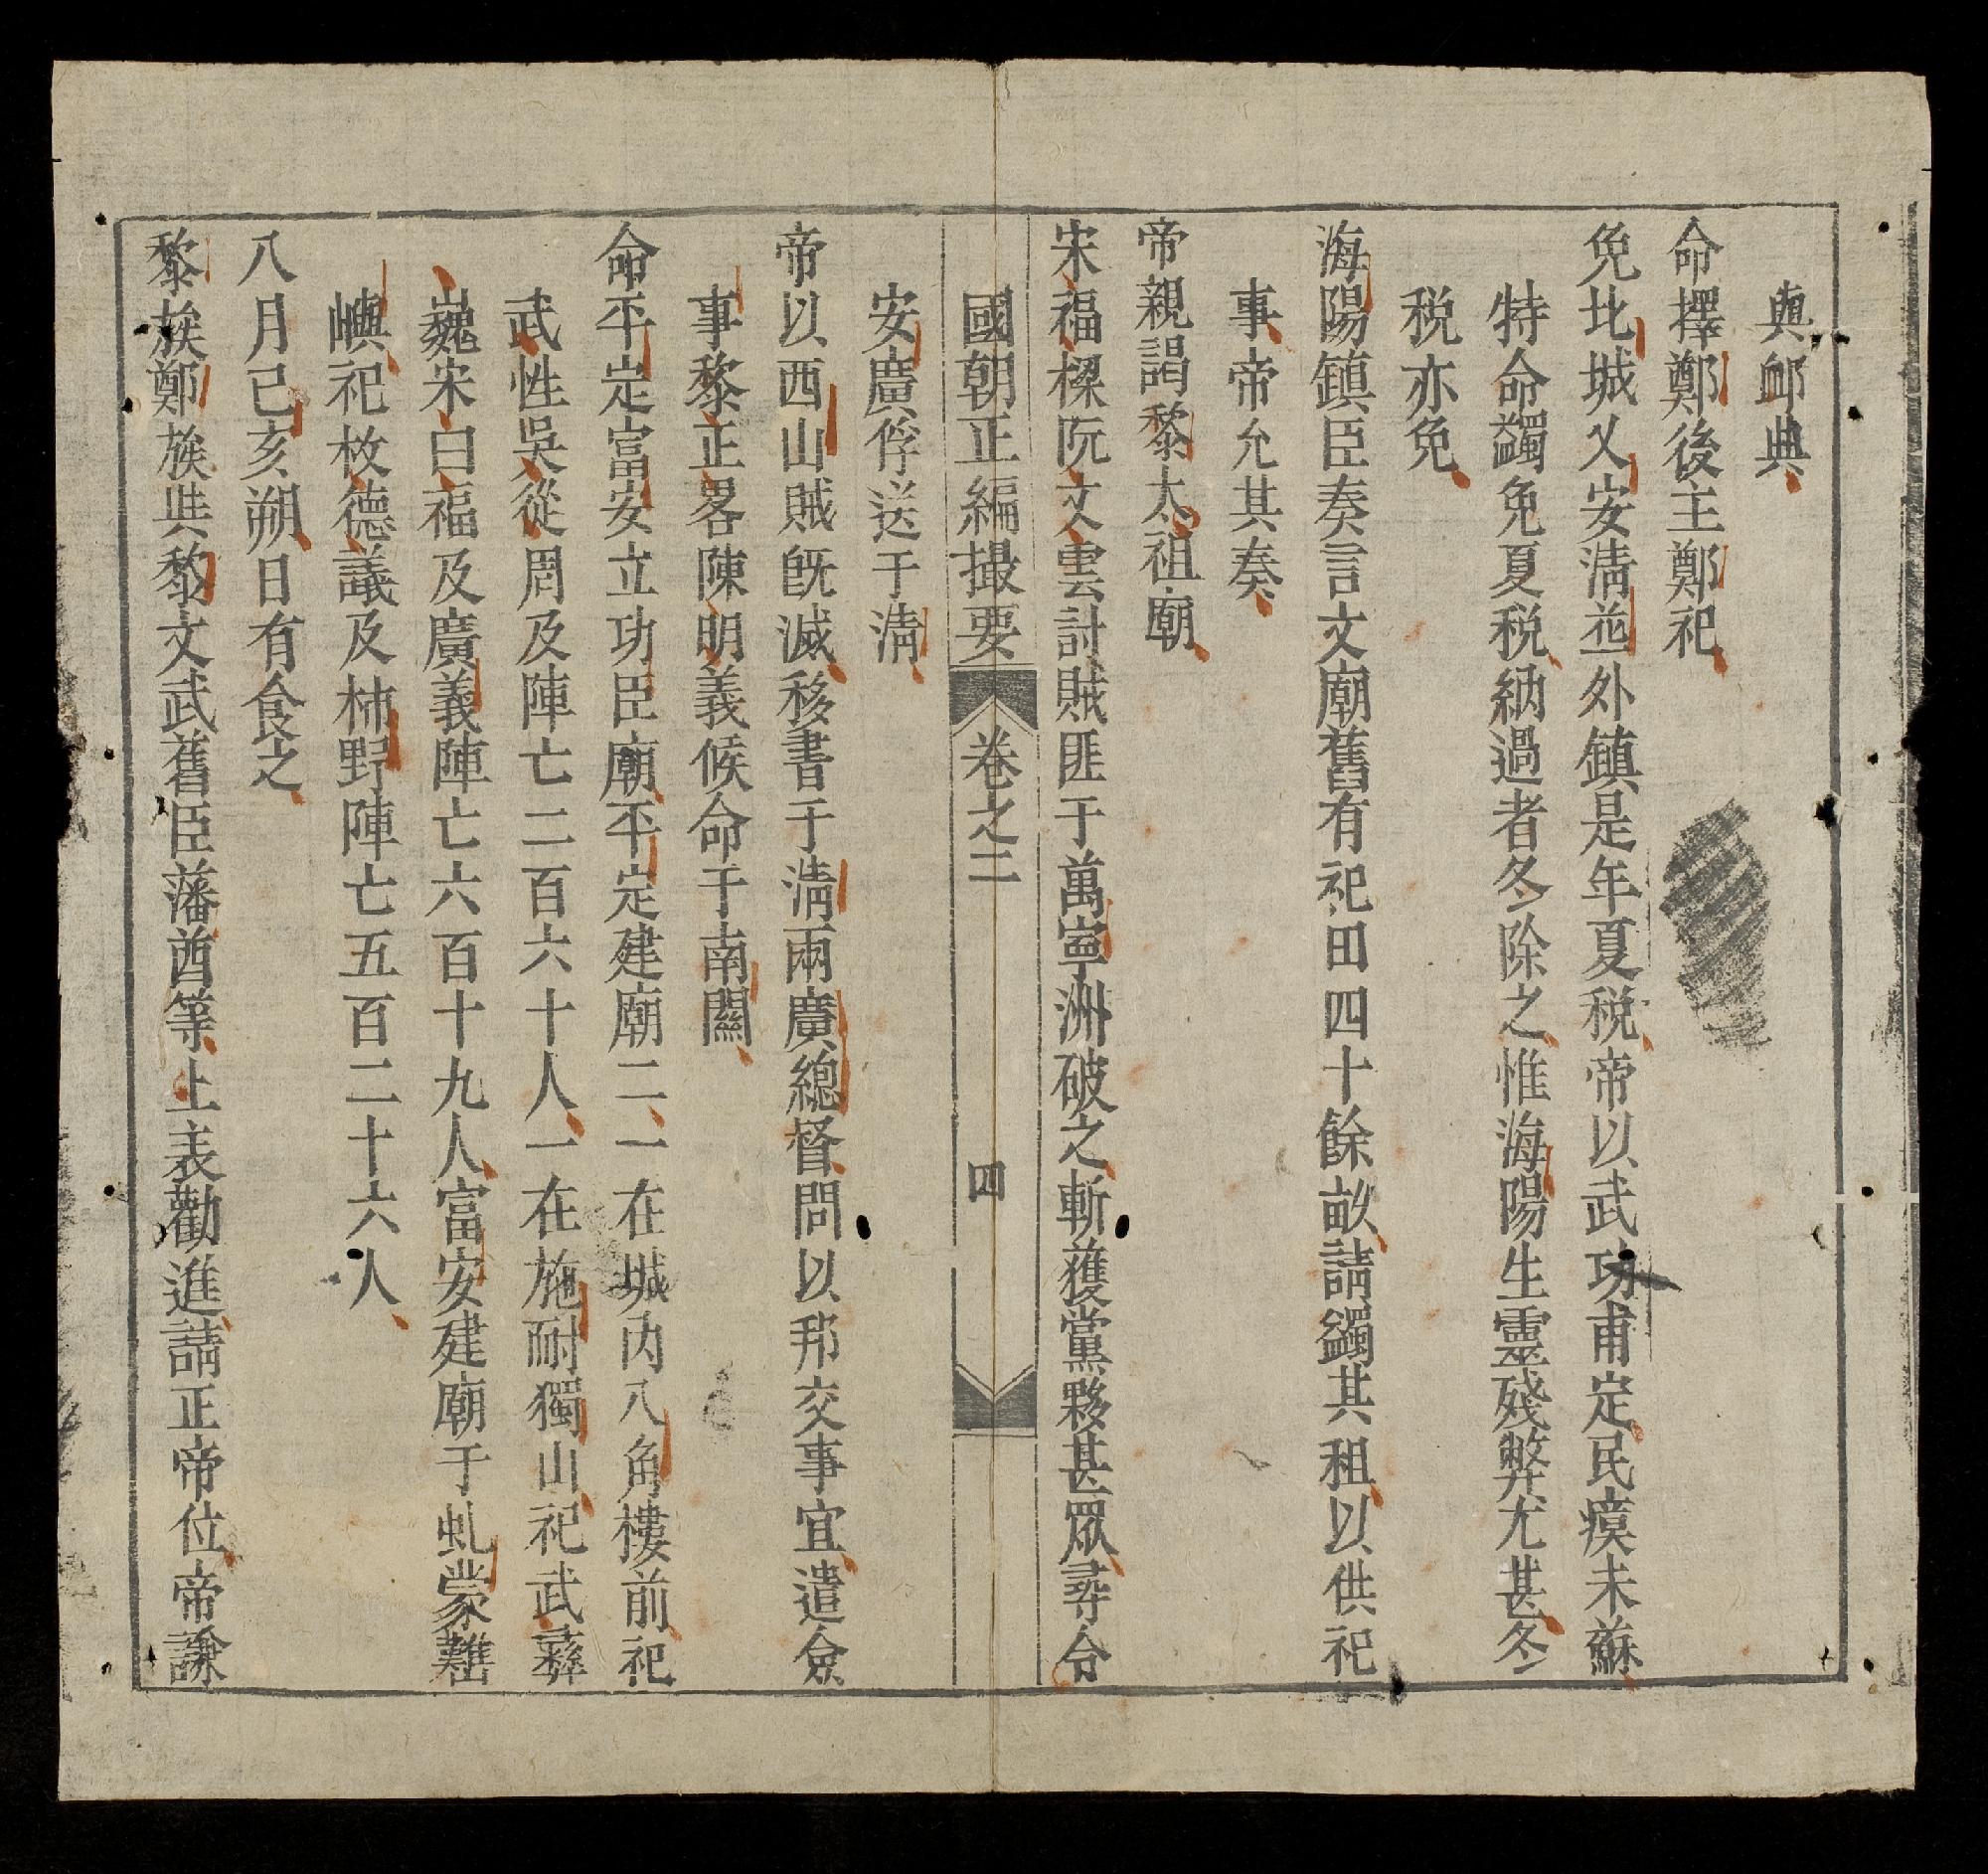 輿卹典
命擇鄭後主鄭祀
免北城乂安淸並外鎮是年夏稅帝以武功甫定民瘼未蘇
特命蠲免夏稅納過者冬除之惟海陽生靈殘弊尤甚冬
稅亦免
海陽鎮臣奏言文廟舊有祀田四十餘畝請蠲其租以供祀
事帝允其奏
帝親謁黎太祖廟
宋福樑阮文雲討賊匪于萬寧洲破之斬獲黨夥甚眾尋令
國朝正編撮要 卷之二 四
安廣俘送于淸
帝以西山賊既滅移書于淸兩廣總督問以邦交事宜遣僉
事黎正畧陳明義候命于南關
命平定富安立功臣廟平定建廟二一在城內八角樓前祀
武性吳從周及陣亡二百六十人一在施耐獨山祀武彝
巍宋曰福及廣義陣亡六百十九人富安建廟于虬蒙
嶼祀枚德議及柿野陣亡五百二十六人
八月己亥朔日有食之
黎族鄭族與黎文武舊臣藩酋等上表勸進請正帝位帝謙